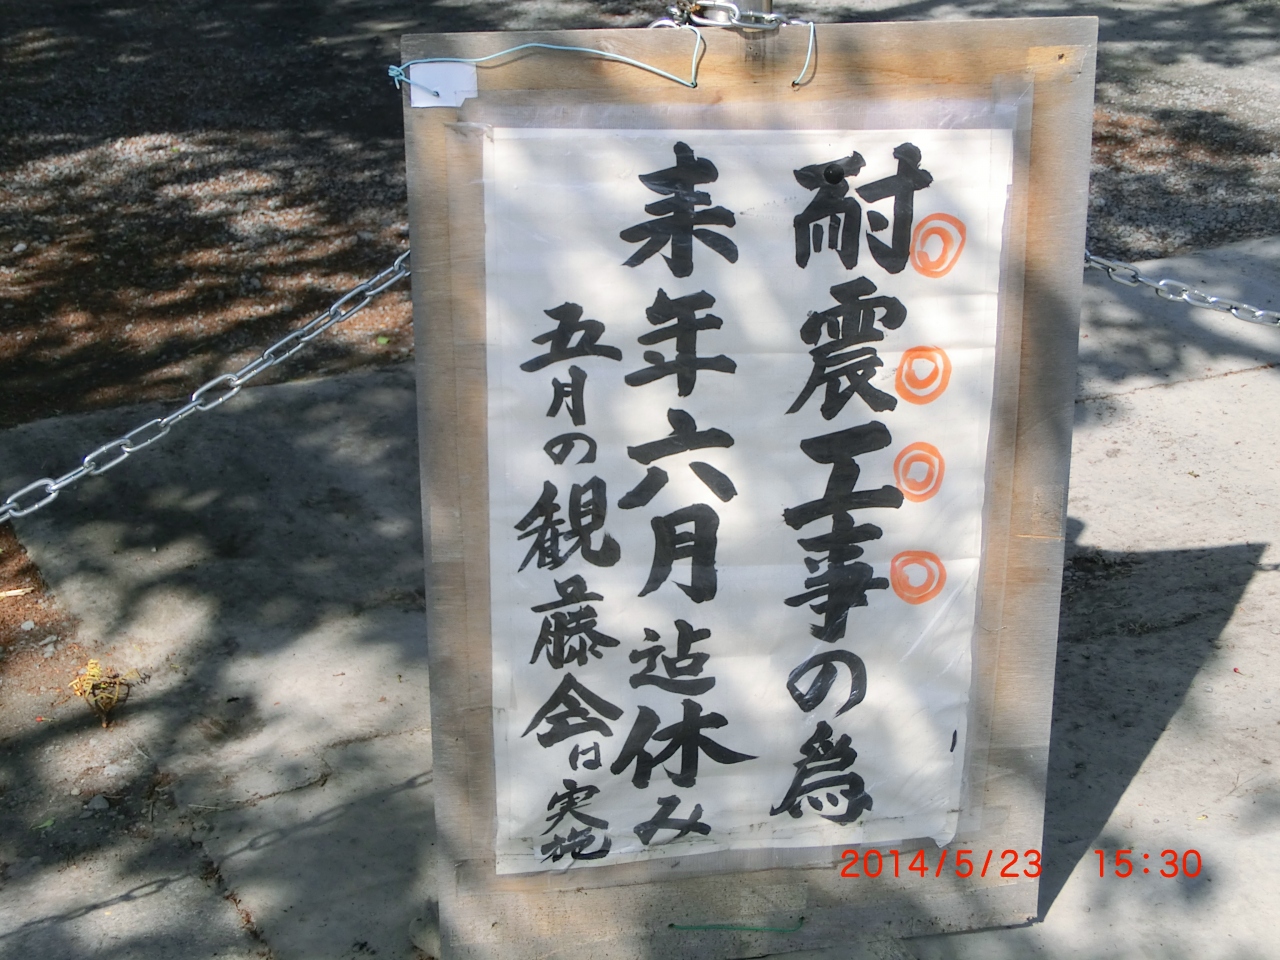 耐震工事の為
来年六月迠休み
五月の観藤会は実施
2014/5/23 15:30